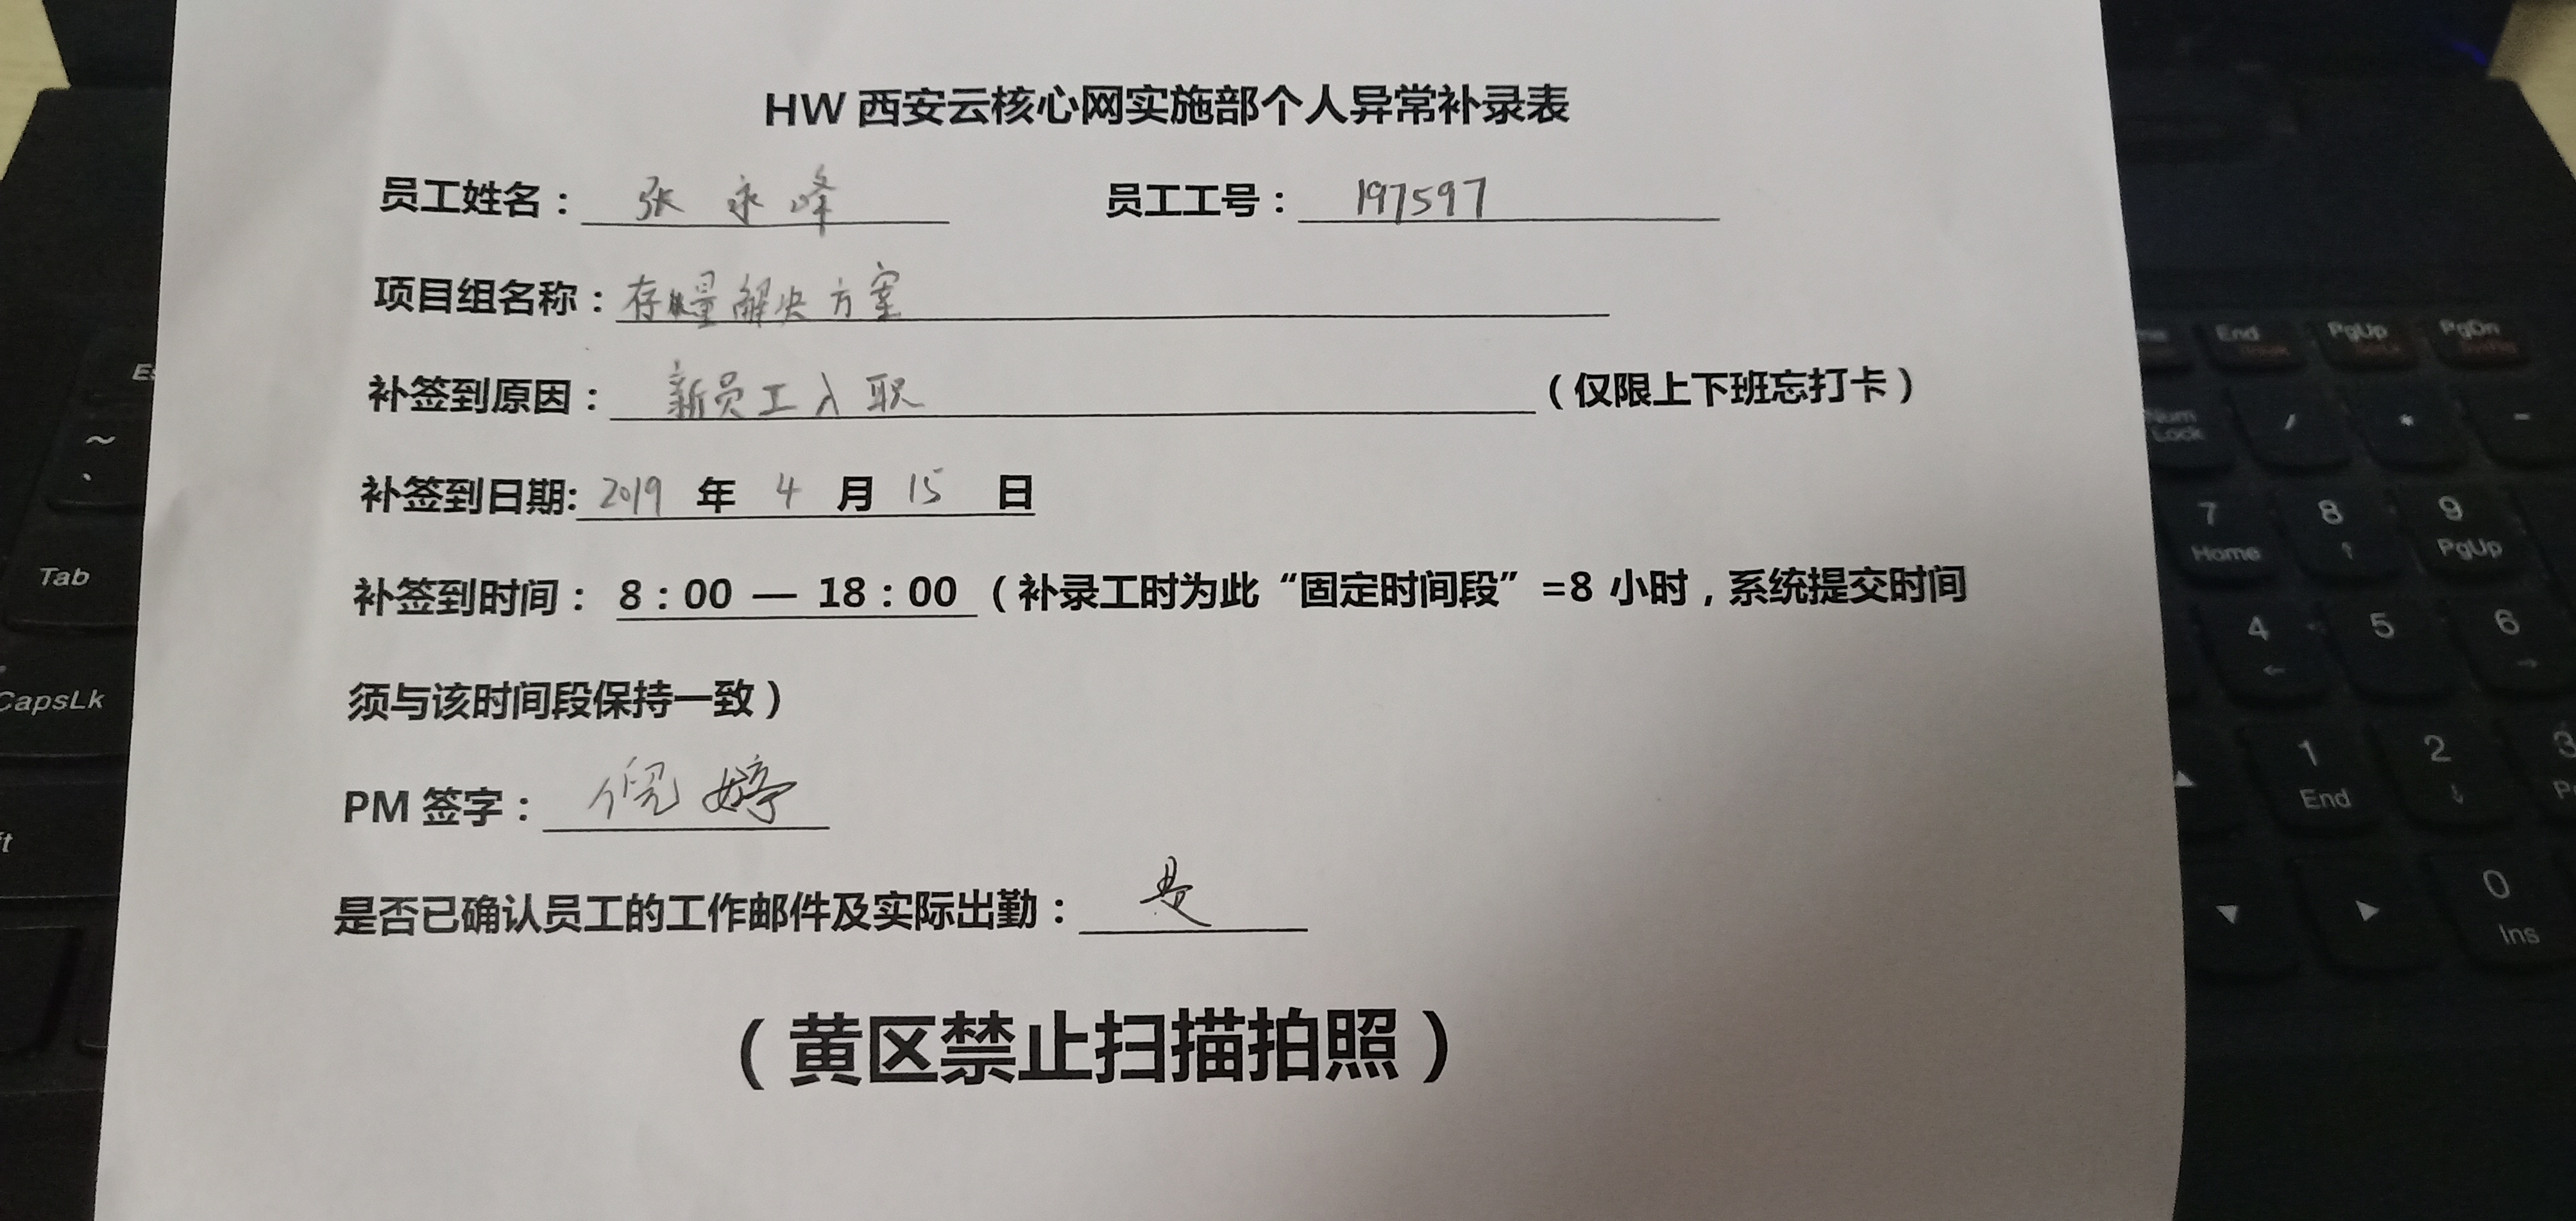 HW 西安云核心网实施部个人异常补录表
员工姓名：张永峰 员工工号：197597
项目组名称：存量解决方案
补签到原因：新员工入职（仅限上下班忘打卡）
补签到日期:2019 年 4 月 15 日
补签到时间：8：00 — 18：00（补录工时为此“固定时间段”=8 小时，系统提交时间
须与该时间段保持一致）
PM 签字：倪婷
是否已确认员工的工作邮件及实际出勤：是
（黄区禁止扫描拍照）
~
`
Tab
CapsLk
End
PgUp
PgDn
Num
Lock
/
*
-
7
Home
8
↑
9
PgUp
4
←
5
6
→
1
End
2
↓
3
0
Ins